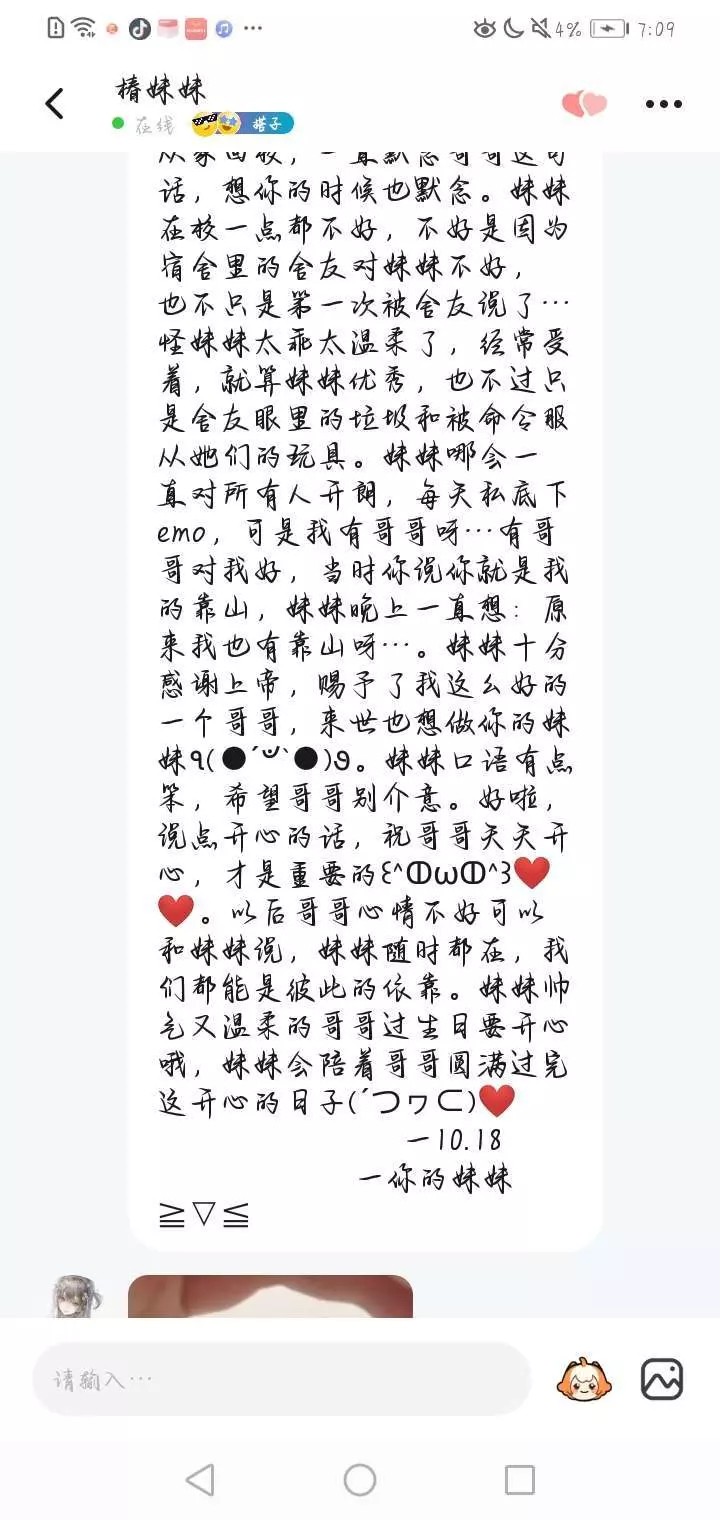 4% 7:09
椿妹妹
在线 搭子
从家回校，一直默念哥哥这句
话，想你的时候也默念。妹妹
在校一点都不好，不好是因为
宿舍里的舍友对妹妹不好，
也不只是第一次被舍友说了…
怪妹妹太乖太温柔了，经常受
着，就算妹妹优秀，也不过只
是舍友眼里的垃圾和被命令服
从她们的玩具。妹妹哪会一
直对所有人开朗，每天私底下
emo，可是我有哥哥呀…有哥
哥对我好，当时你说你就是我
的靠山，妹妹晚上一直想：原
来我也有靠山呀…。妹妹十分
感谢上帝，赐予了我这么好的
一个哥哥，来世也想做你的妹
妹٩(●ˊ꒳ˋ●)۶。妹妹口语有点
笨，希望哥哥别介意。好啦，
说点开心的话，祝哥哥天天开
心，才是重要的٤^ↀωↀ^३❤️
❤️。以后哥哥心情不好可以
和妹妹说，妹妹随时都在，我
们都能是彼此的依靠。妹妹帅
气又温柔的哥哥过生日要开心
哦，妹妹会陪着哥哥圆满过完
这开心的日子(´つヮ⊂)❤️
一10.18
一你的妹妹
≧▽≦
请输入…